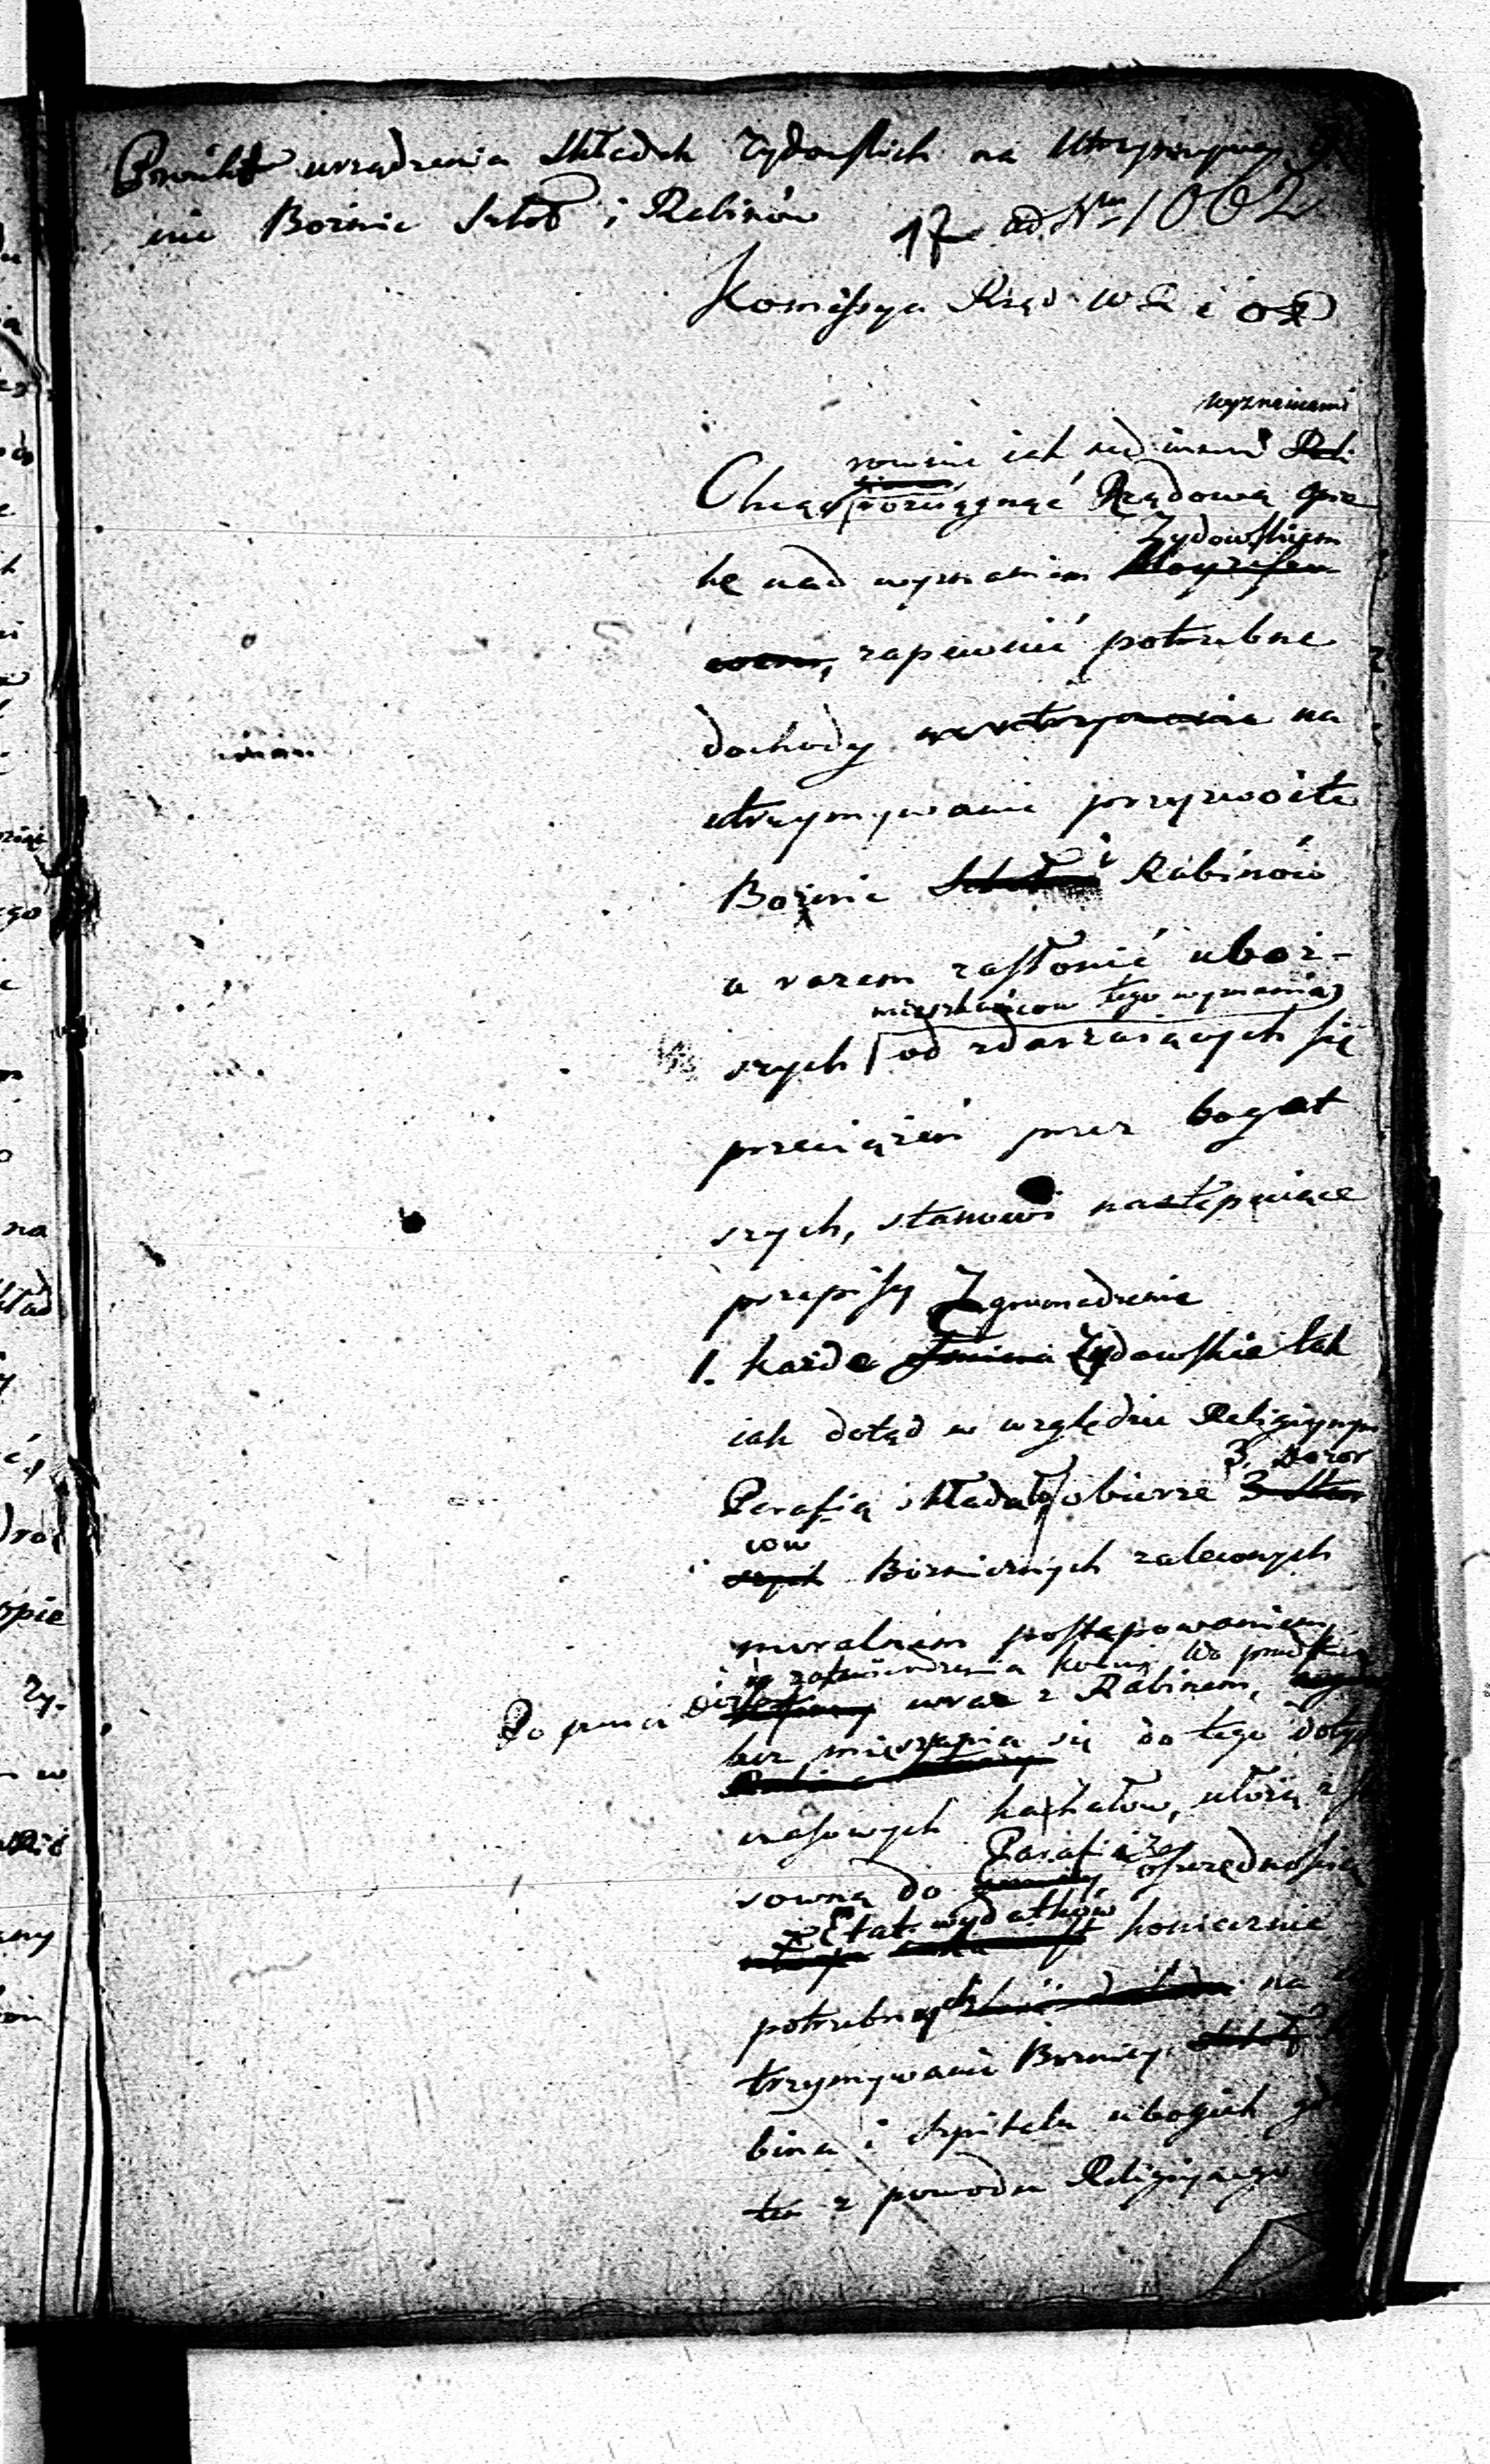 Proiekt urządzenia składek Żydowskich na Utrzymywa
nie Bożnic Szkół i Rabinów 17 ad Nm 1062
Komissya Rząd W R i O P
wyznaniami
rownie iak nad innemi Reli
Chcąc rozciągnąć Rządową opie
Żydowskiem
kę nad wyznaniem Moyżeszo
wem, zapewnić potrzebne
dochody na utrzymanie na
utrzymywanie przyzwoite
Bożnic Szkół i Rabinów
a razem zasłonić uboż-
mieszkańcow tego wyznania
szych od zdarzaiących się
przeciążeń przez bogat
szych, stanowi następuiące
przepisy Zgromadzenie
1. każde Gmina Żydowskie tak
iak dotąd w względzie Religiynym
3. Dozor
Parafią składać obierze 3 Star
cow
szych Bożnicznych zaleconych
moralnem postępowaniem
i zatwierdzenia Komis: Wo
wraz z Rabinem,
Do
bez mięszania się do tego dotych
czasowych kachałow, ułożą z
Parafii
sowną do gminy oszczędnością
Etat wydatków koniecznie
potrzebnych na u
trzymywanie Bożnicy Szkoły
bina i szpitala ubogich
tu z powodu Religiynego